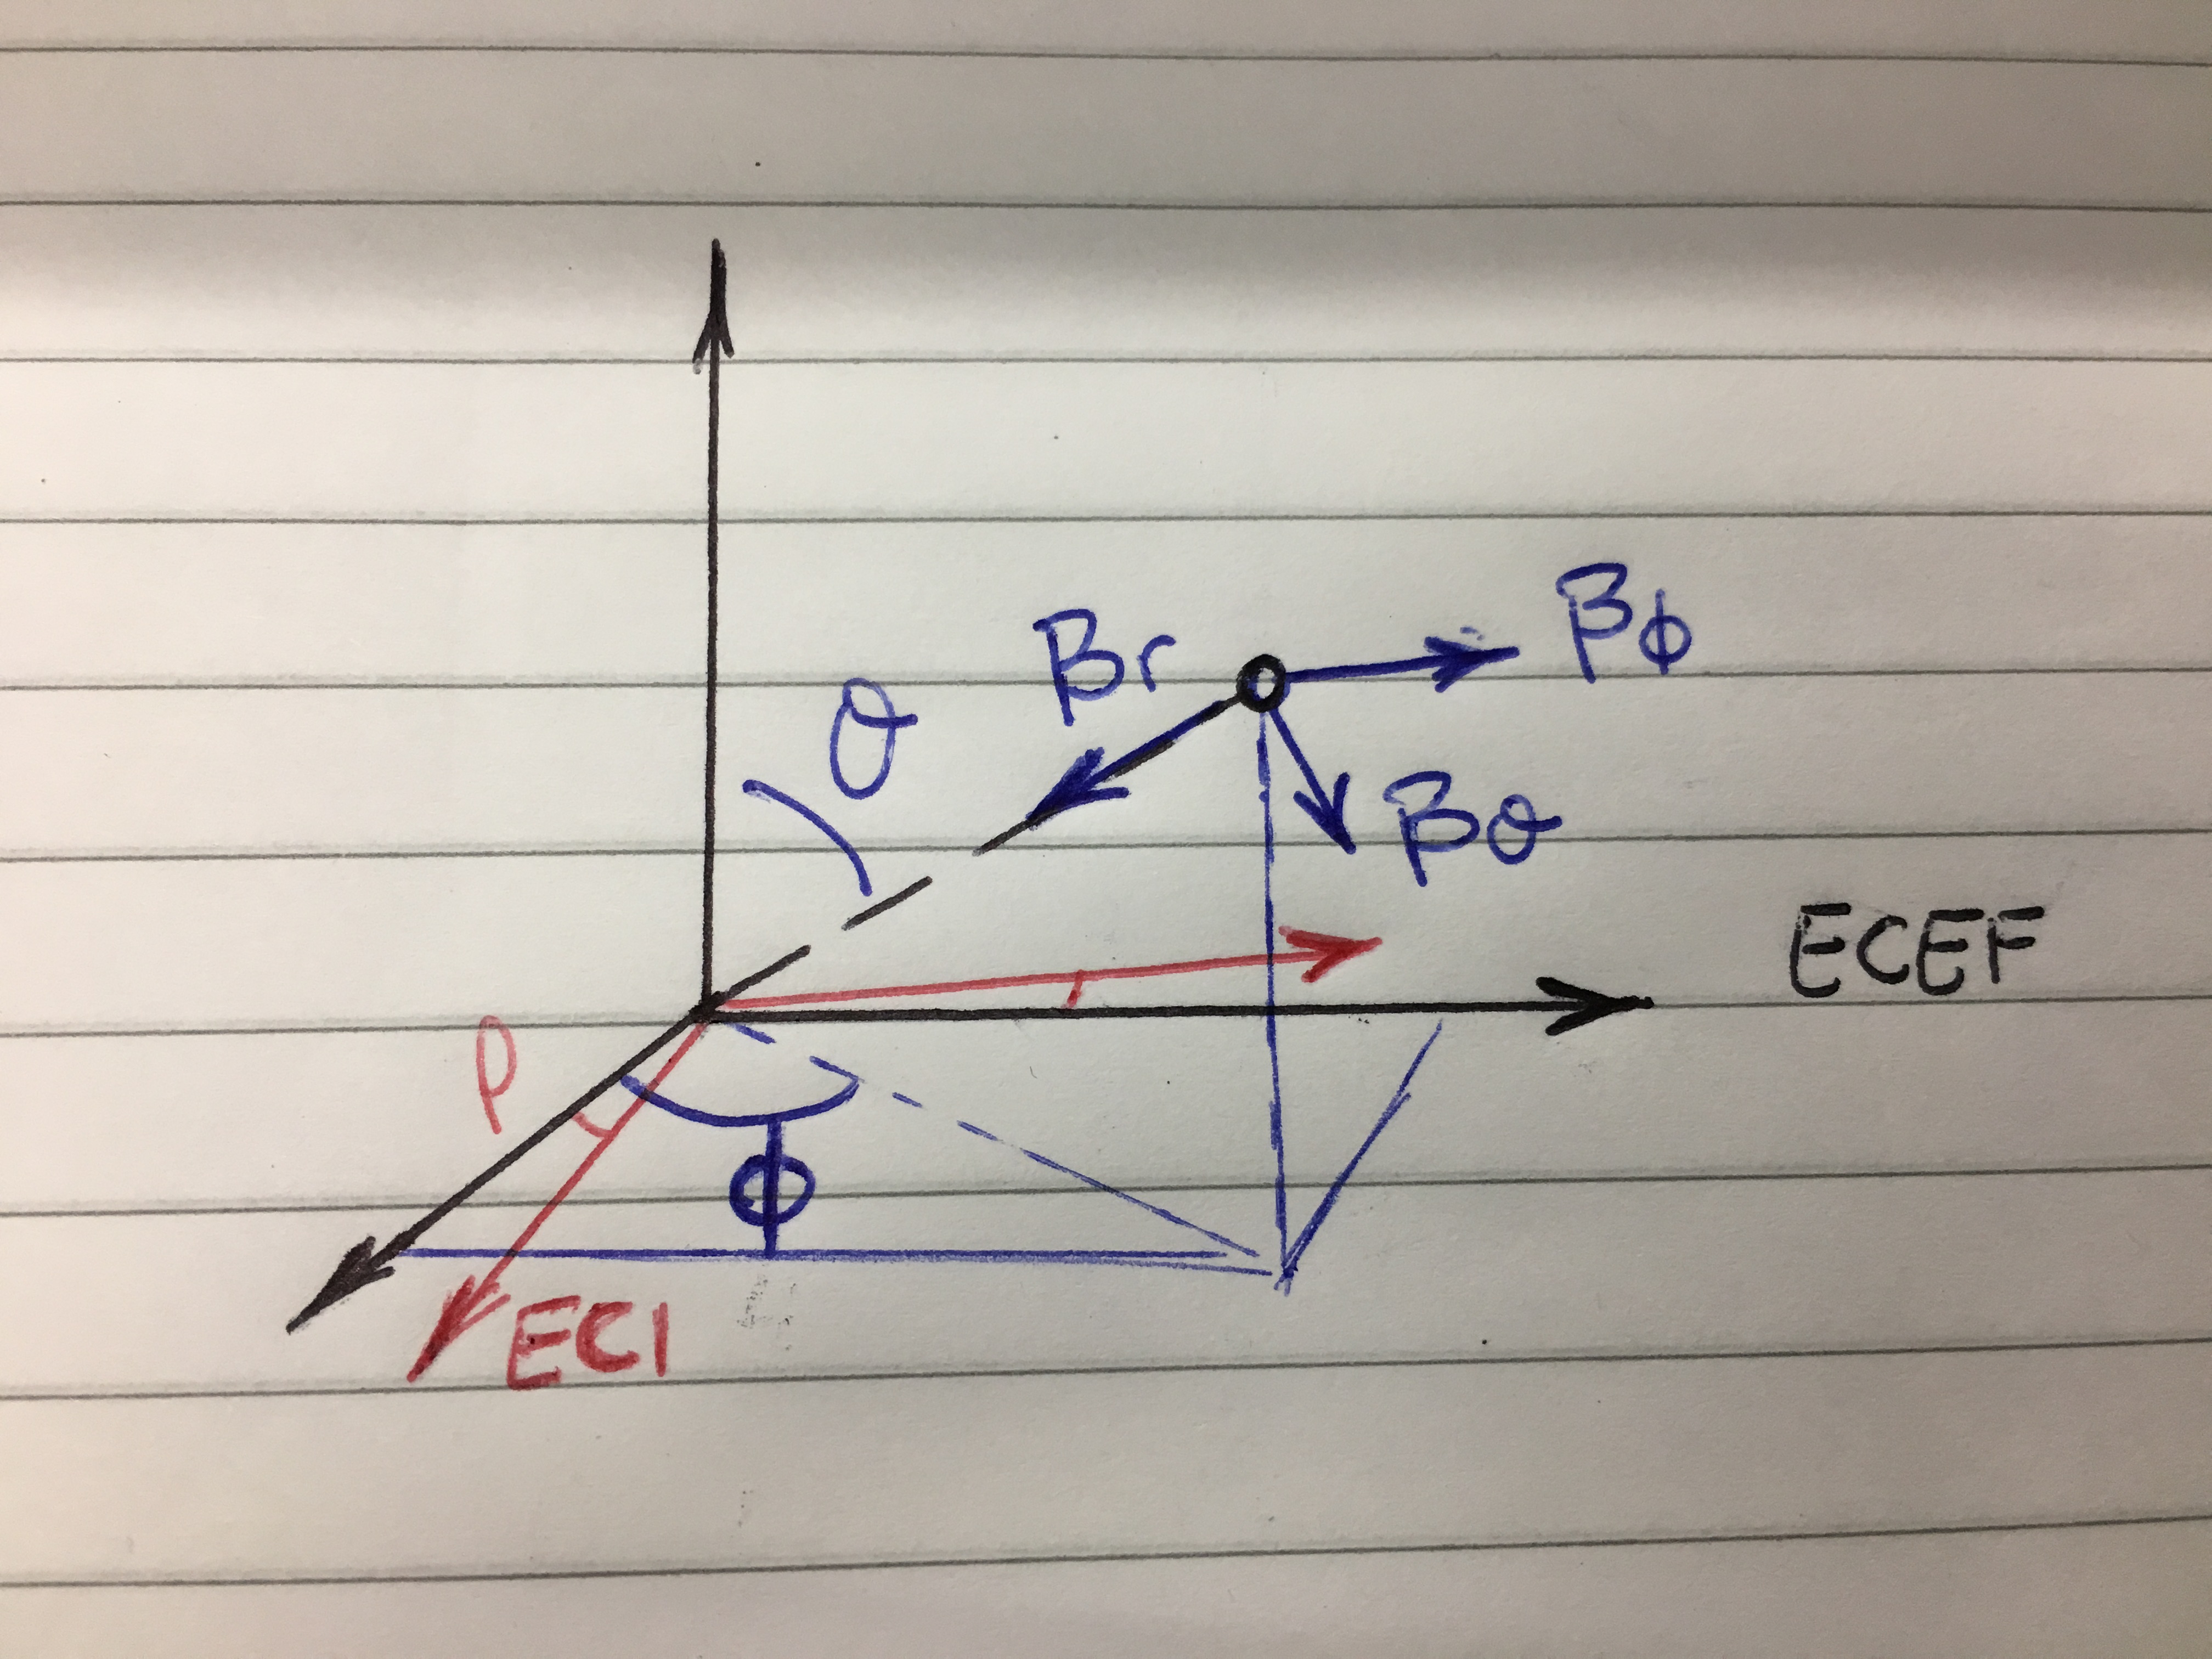 Bφ
Br
θ
Bθ
ECEF
ρ
φ
ECI